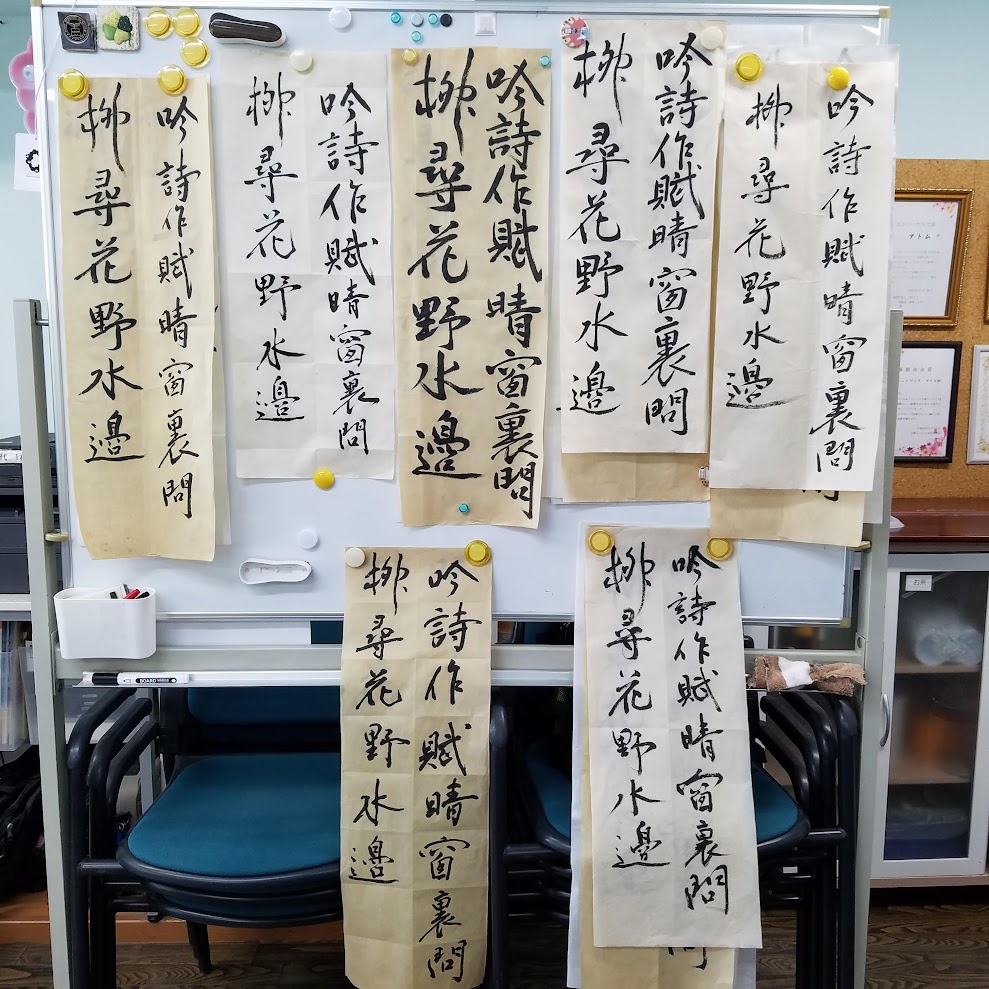 吟詩作賦晴窗裏問
柳尋花野水邊
吟詩作賦晴窗裏問
柳尋花野水邊
吟詩作賦晴窗裏問
柳尋花野水邊
吟詩作賦晴窗裏問
柳尋花野水邊
吟詩作賦晴窗裏問
柳尋花野水邊
吟詩作賦晴窗裏問
柳尋花野水邊
吟詩作賦晴窗裏問
柳尋花野水邊
アトム
BOARD